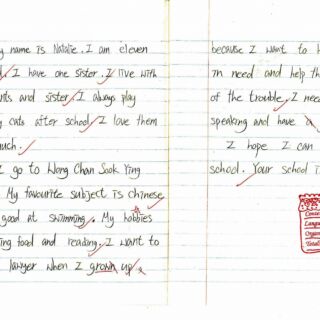 name is Natalie. I am eleven
I have one sister. I live with
and sister. I always play
cats after school. I love them
I go to Wong Chan Sook Ying
My favourite subject is chinese
good at swimming. My hobbies
food and reading. I want to
lawyer when I grown up
because I want to
in need and help
of the trouble. I
speaking and have a
I hope I can
school. Your school